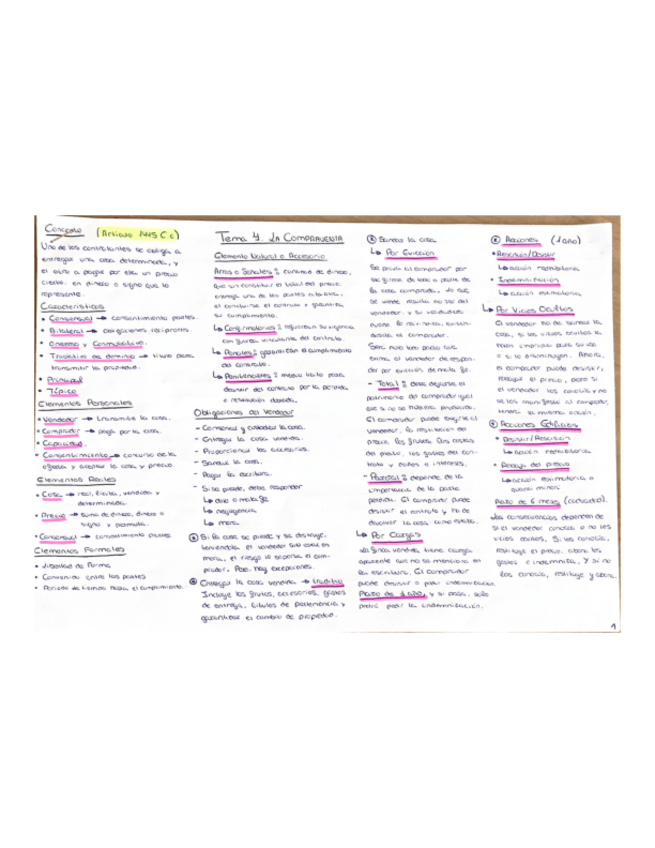 Concepto (Artículo 1445 C.c)
Uno de los contratantes se obliga a
entregar una cosa determinada, y
el otro a pagar por ella un precio
cierto, en dinero o signo que lo
represente.
Características
• Consensual → consentimiento partes.
• Bilateral → obligaciones recíprocas.
• Oneroso y Conmutativo.
• Traslativo de dominio → sirve para
transmitir la propiedad.
• Principal
• Típico
Elementos Personales
• Vendedor → transmite la cosa.
• Comprador → paga por la cosa.
• Capacidad.
• Consentimiento → concurso de la
oferta y aceptar la cosa y precio.
Elementos Reales
• Cosa → real, lícita, vendida y
determinada.
• Precio → suma de dinero, dinero o
signo y permuta.
• Consensual → consentimiento partes
Elementos Formales
• Libertad de Forma
• Convenido entre las partes
• Periodo de tiempo hasta el cumplimiento.
Tema 4. LA COMPRAVENTA
Elemento Natural o Accesorio
Arras o Señales: cantidad de dinero,
que sin constituir el total del precio
entrega una de las partes a la otra,
al concluirse el contrato y garantiza
su cumplimiento.
↳ Confirmatorias:
con fuerza vinculante del contrato.
↳ Penales: garantizan el cumplimiento
del contrato.
↳ Penitenciales: medio lícito para
desistir del contrato por la pérdida
o restitución doblada.
Obligaciones del Vendedor
- Conservar y custodiar la cosa.
- Entregar la cosa vendida.
- Proporcionar los accesorios.
- Sanear la cosa.
- Pagar la escritura.
- Si se pierde, debe responder
↳ dolo o mala fe
↳ negligencia
↳ mora.
① Si la cosa se pierde y se destruye,
teniéndola el vendedor sin estar en
mora, el riesgo lo soporta el com-
prador. Pero hay excepciones.
② Entregar la cosa vendida → traditio
Incluye los frutos, accesorios, gastos
de entrega, títulos de pertenencia y
garantizar el cambio de propiedad.
③ Sanear la cosa
↳ Por Evicción
Se priva al comprador por
sentencia firme de todo o parte de
la cosa comprada,
el comprador.
exima al vendedor de respon-
der por evicción de mala fe.
- Total: debe dejarse el
patrimonio del comprador igual
que si no se hubiese producido.
El comprador puede exigirle al
vendedor, la restitución del
precio, los frutos, las costas
del pleito, los gastos del con-
trato y daños e intereses.
- Parcial: depende de la
importancia de la parte
perdida. El comprador puede
desistir el contrato y ha de
devolver la cosa como estaba.
↳ Por Cargas
La finca vendida tiene cargas
aparente que no se menciona en
la escritura. El comprador
puede desistir o pedir indemnización.
Plazo de 1 año, y si pasa, sólo
podrá pedir la indemnización.
Acciones (1 año)
• Rescisión/Desistir
↳ acción redhibitoria
• Indemnización
↳ acción estimatoria
↳ Por Vicios Ocultos
El vendedor ha de sanear la
cosa, si los vicios ocultos la
hacen impropia para su uso
o si lo disminuyen. Ahora,
el comprador puede desistir,
rebajar el precio, pero si
el vendedor los conocía y no
se los manifestó al comprador,
tendrá la misma acción.
④ Acciones Edilicias
• Desistir/Rescisión
↳ acción redhibitoria
• Rebaja del precio
↳ acción estimatoria o
quanti minoris
Plazo de 6 meses (caducidad).
Las consecuencias dependen de
si el vendedor conocía o no los
vicios ocultos. Si los conocía,
restituye el precio, abona los
gastos e indemniza, y si no
los conocía, restituye y abona.
1